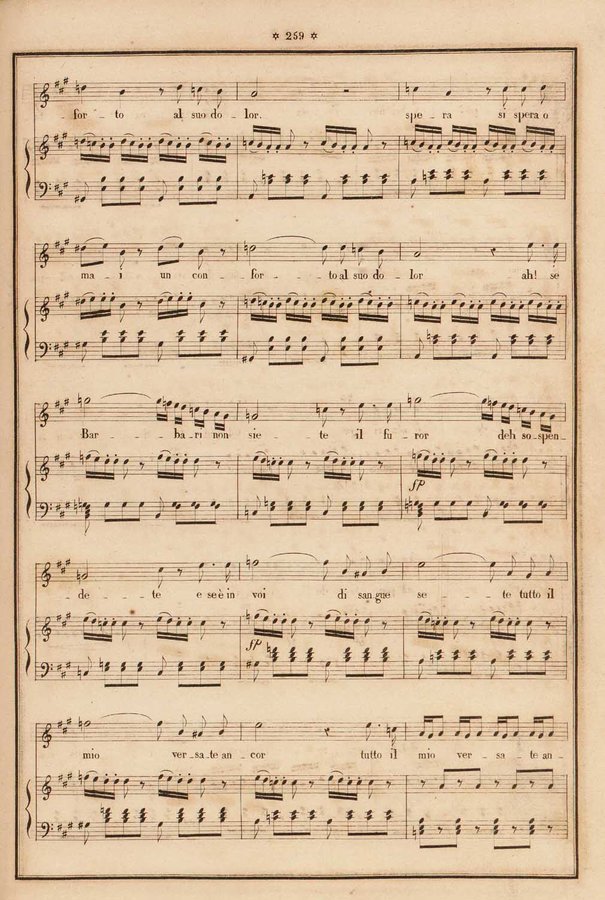 ✡ 259 ✡
for_to al suo do_lor. spe_ra si spera o
ma_i un con_for_to al suo do_lor ah! se
Bar_ba_ri non sie_te il fu_ror deh sospen_
de_te e se è in voi di sangue se_te tutto il
sfp
mio ver_sa_te an_cor tutto il mio ver_sa_te an_